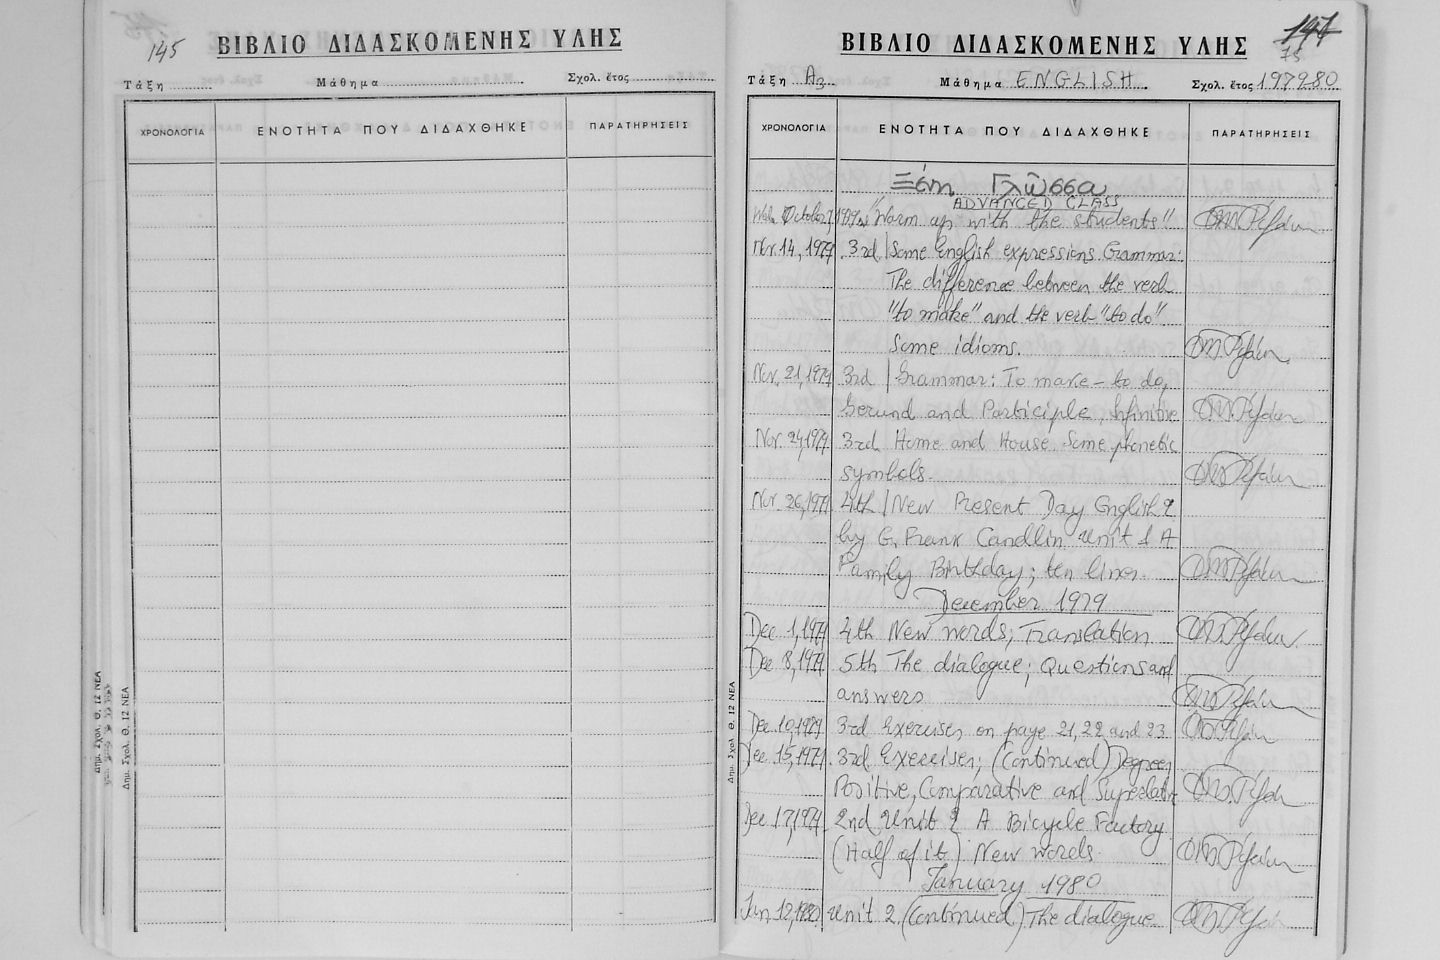 145
ΒΙΒΛΙΟ ΔΙΔΑΣΚΟΜΕΝΗΣ ΥΛΗΣ
Τάξη Μάθημα Σχολ. ἔτος
ΧΡΟΝΟΛΟΓΙΑ ΕΝΟΤΗΤΑ ΠΟΥ ΔΙΔΑΧΘΗΚΕ ΠΑΡΑΤΗΡΗΣΕΙΣ
Δημ. Σχολ. Θ. 12 ΝΕΑ
Δημ. Σχολ. Θ. 12 ΝΕΑ
147
75
ΒΙΒΛΙΟ ΔΙΔΑΣΚΟΜΕΝΗΣ ΥΛΗΣ
Τάξη Α3 Μάθημα ENGLISH Σχολ. ἔτος 197980
ΧΡΟΝΟΛΟΓΙΑ ΕΝΟΤΗΤΑ ΠΟΥ ΔΙΔΑΧΘΗΚΕ ΠΑΡΑΤΗΡΗΣΕΙΣ
Ξένη Γλῶσσα
ADVANCED CLASS
October "Warm up with the students"
Nov. 14, 1979 3rd Some English expressions. Grammar:
The difference between the verb
"to make" and the verb "to do"
Some idioms.
Nov. 21, 1979 3rd Grammar: To make – to do,
Gerund and Participle, Infinitive
Nov. 24, 1979 3rd Home and House. Some phonetic
symbols.
Nov. 26, 1979 4th New Present Day English 2
by G. Frank Candlin Unit 1 A
Family Birthday; ten lines.
December 1979
Dec 1, 1979 4th New words; Translation
Dec 8, 1979 5th The dialogue; Questions and
answers
Dec. 10, 1979 3rd Exercises on page 21, 22 and 23
Dec. 15, 1979 3rd Exercises; (Continued) Degrees
Positive, Comparative and Superlative
Dec 17, 1979 2nd Unit 2 A Bicycle Factory
(Half of it) New words.
January 1980
Jan. 12, 1980 Unit 2 (Continued) The dialogue
Δημ. Σχολ. Θ. 12 ΝΕΑ